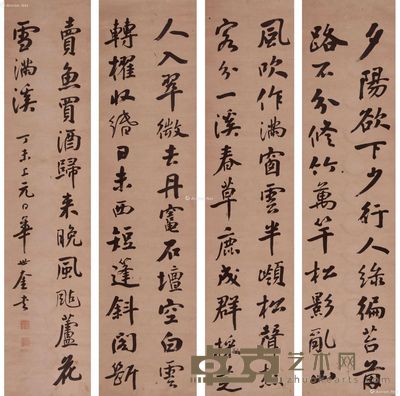 夕陽欲下少行人綠徧苔茵
路不分修竹萬竿松影亂山
風吹作滿窗雲半嶺松聲樵
客分一溪春草鹿成群採芝
人入翠微去丹竈石壇空白雲
轉櫂收緡日未西短篷斜閣斷
賣魚買酒歸來晚風颭蘆花
雪滿溪 丁未上元日華世奎書